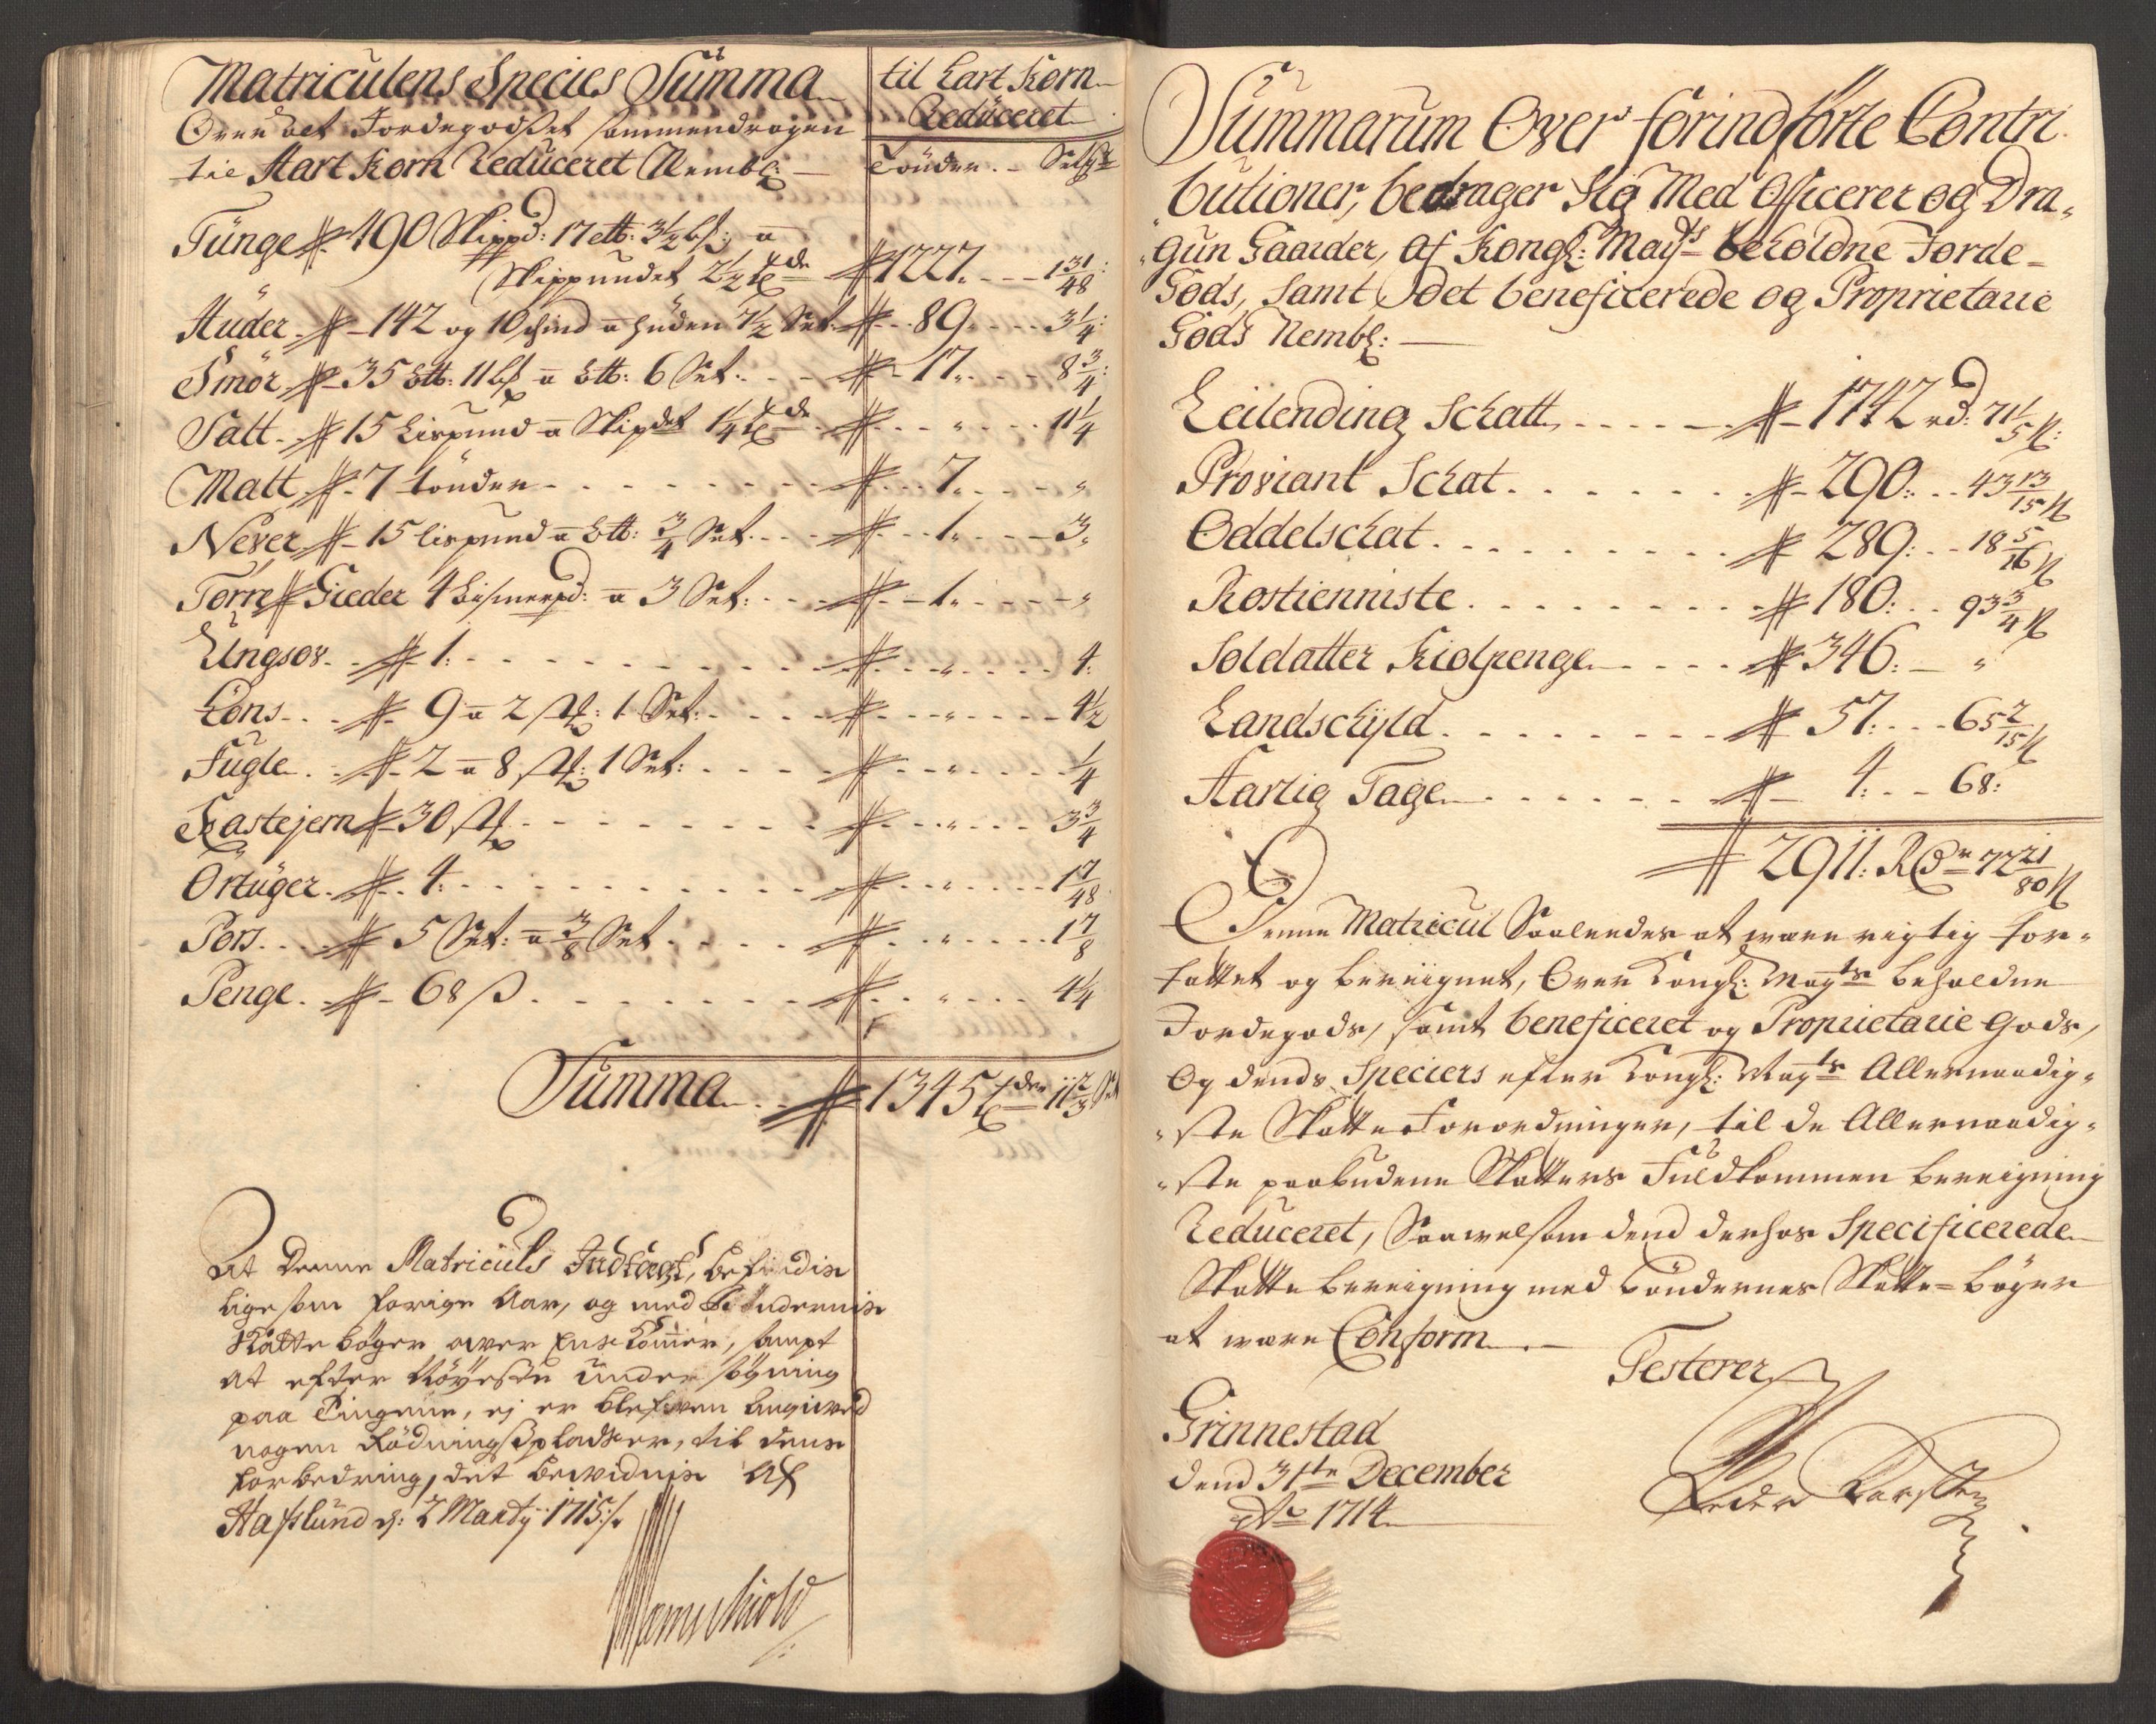 Matriculens Species Summa
Over alt Jordegodset sammendragen
til Hart Korn Reduceret Nembl:
til Hart Korn
Reduceret
Tönder. Set:
Tünge 490 Skippd: 17 Ltt: 3½ &#8468; a
Skippundet 2½ Tde 1227. 1 31/48
Huder 142 og 10 skind a huden 7½ Set: 89. 3¼
Smör 35 Ltt: 11 a Ltt: 6 Set: 17. 8¾
Salt 15 Lispund a Skipdet 1¼ Tde " 11¼
Malt 7 tönder 7. "
Never 15 lispund a Ltt: ¾ Set 1. 3.
Törre Gieder 4 Bismerpd: a 3 Set: 1. "
Ungsov 1: " 4.
Höns 9 a 2 st: 1 Set: " 4½
Fugle 2 a 8 st: 1 Set: " ¼
Kastejern 30 st " 3¾
Örtuger 4: " 1 17/48
Pors 5 Set: a 3/8 Set " 1 7/8
Penge 68 ß " 4¼
Summa 1345 Tder 11 2/3 Set
At Denne Matriculs Indtægt, befindis
lige som forige Aar, og med Böndernis
Skatte bøger over Ens kommer, sampt
at efter Nöyeste Undersøgning
paa Tingene, ej er blefven Angived
nogen Rödningspladser, til dens
forbedring, det bevidnis Af
Hafslund d: 2 Marty 1715
Summarum Over forindførte Contri
butioner, bedrager Sig Med Officerer og Dra,
gun Gaarder, Af Kongl: Mayts beholdne Jorde-
Gods, Samt Det beneficerede og Proprietarie
Gods Nembl:
Leilending Schatt 1742 rd: 71 1/5 ß:
Proviant Schat 290: 43 13/15 ß
Oddelschat 289: 18 5/16 ß
Rostienniste 180: 93¾ ß
Soldatter Kiolpenge 346: "
Landschyld 57: 65 2/15 ß
Aarlig Tage 4: 68:
2911: Rdr 72 21/80 ß
Denne Matricul Saaleedes at være rigtig for-
fattet og bereignet, Over Kongl: Mayts beholdne
Jordegods, samt beneficeret og Proprietarie Gods,
Og dends Speciers efter Kongl: Mayts Allernaadig-
ste Skatte Forordninger, til de Allernaadig-
ste paabudene Skatters Fuldkommen bereigning
Reduceret, Saavelsom dend derhos Specificerede
Skatte bereigning med bøndernes Skatte-bøger
at være Conform
Testerer
Grinnestad
dend 31te December
Ao 1714
Peder Karsten